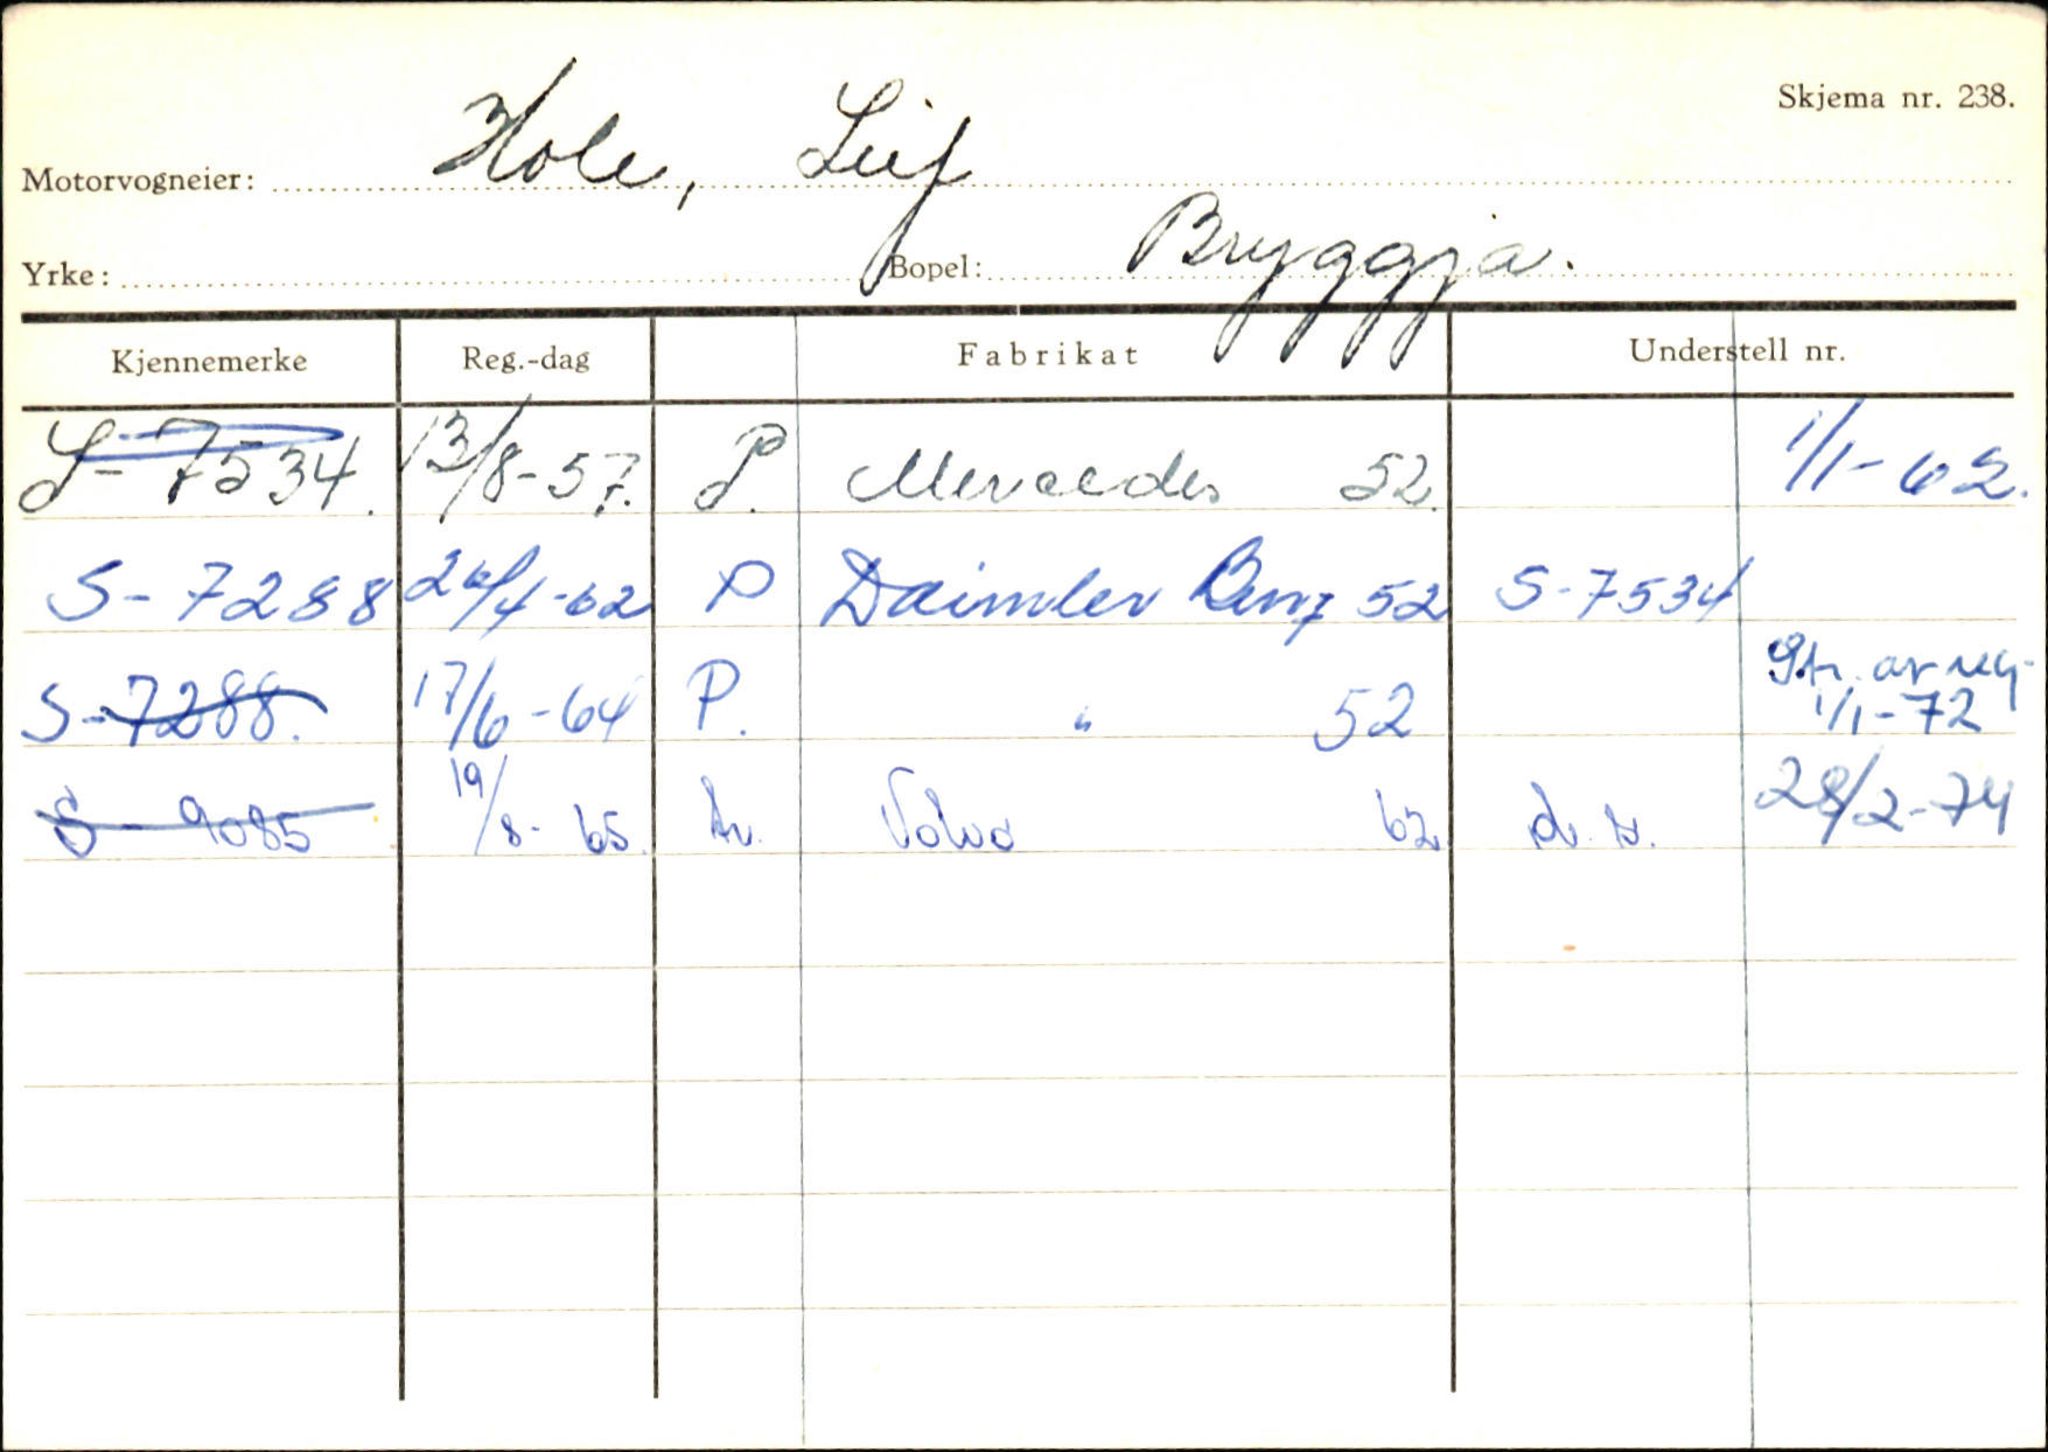 Skjema nr. 238.
Motorvogneier: Hole, Leif
Yrke: Bopel: Bryggja.
Kjennemerke Reg.-dag Fabrikat Understell nr.
S-7534. 13/8-57. P. Mercedes 52. 1/1-62.
S-7288 /4-62 P Daimler Benz 52 S-7534
Str. av reg.
S-7288. 17/6-64 P. " 52 1/1-72
S-9085 19/8-65. Volvo 62 28/2-74